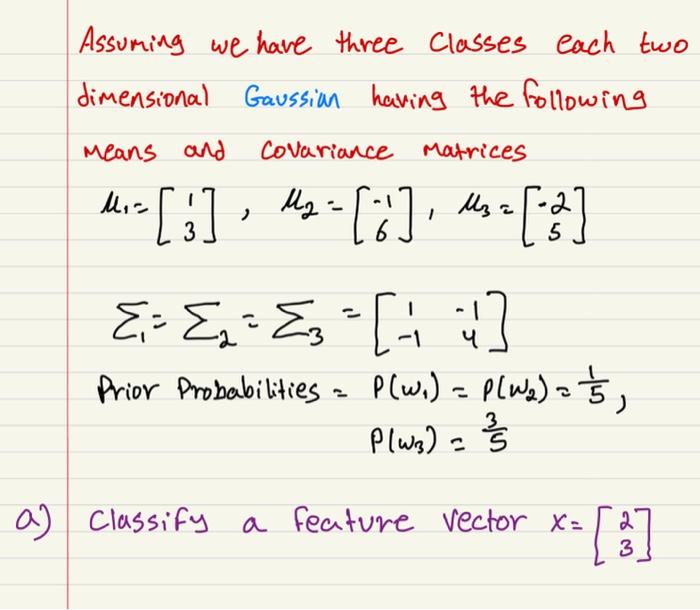 Assuming we have three Classes each two
dimensional Gaussian having the following
means and Covariance Matrices
μ₁ = [1 3], μ₂ = [-1 6], μ₃ = [-2 5]
Σ₁ = Σ₂ = Σ₃ = [1 -1 -1 4]
Prior Probabilities = P(w₁) = P(w₂) = 1/5,
P(w₃) = 3/5
a) Classify a feature vector x = [2 3]